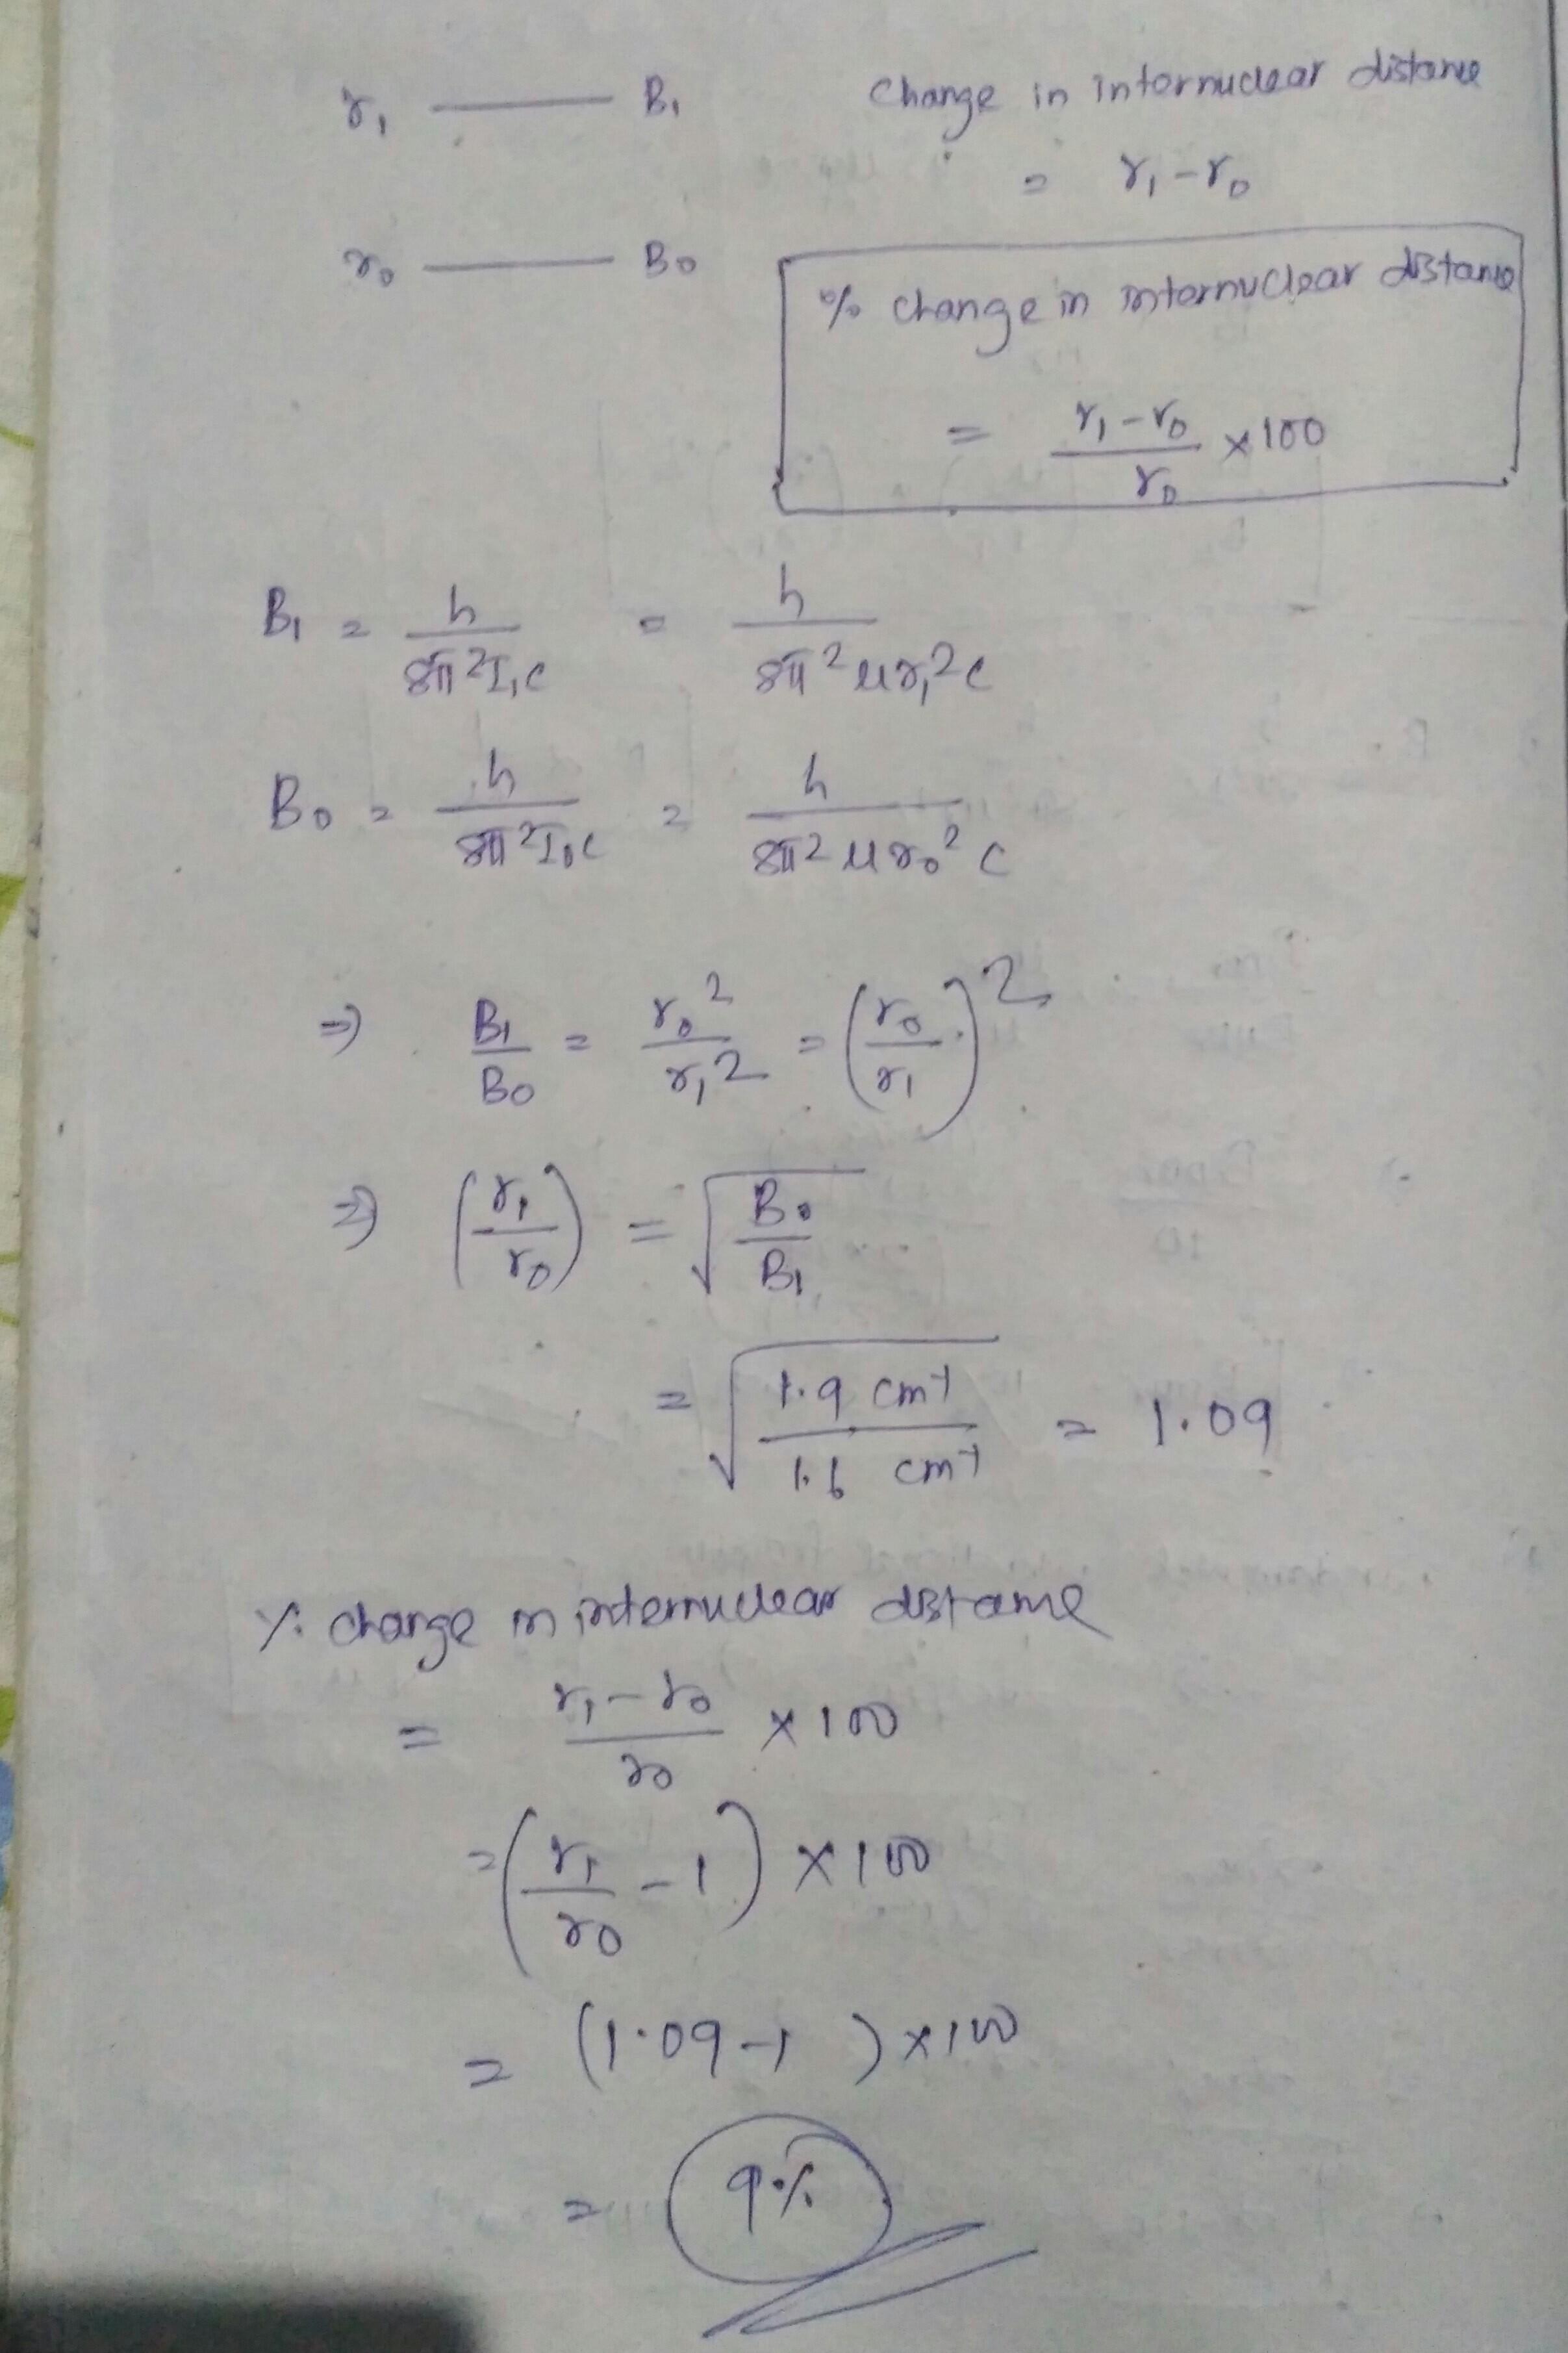 r₁ —— B₁
Change in internuclear distance
= r₁ - r₀
r₀ —— B₀
% change in internuclear distance
= (r₁ - r₀)/r₀ × 100
B₁ = h/(8π²I₁c) = h/(8π²μr₁²c)
B₀ = h/(8π²I₀c) = h/(8π²μr₀²c)
⇒ B₁/B₀ = r₀²/r₁² = (r₀/r₁)²
⇒ (r₁/r₀) = √(B₀/B₁)
= √(1.9 cm⁻¹/1.6 cm⁻¹) = 1.09
% change in internuclear distance
= (r₁ - r₀)/r₀ × 100
= (r₁/r₀ - 1) × 100
= (1.09 - 1) × 100
= 9%